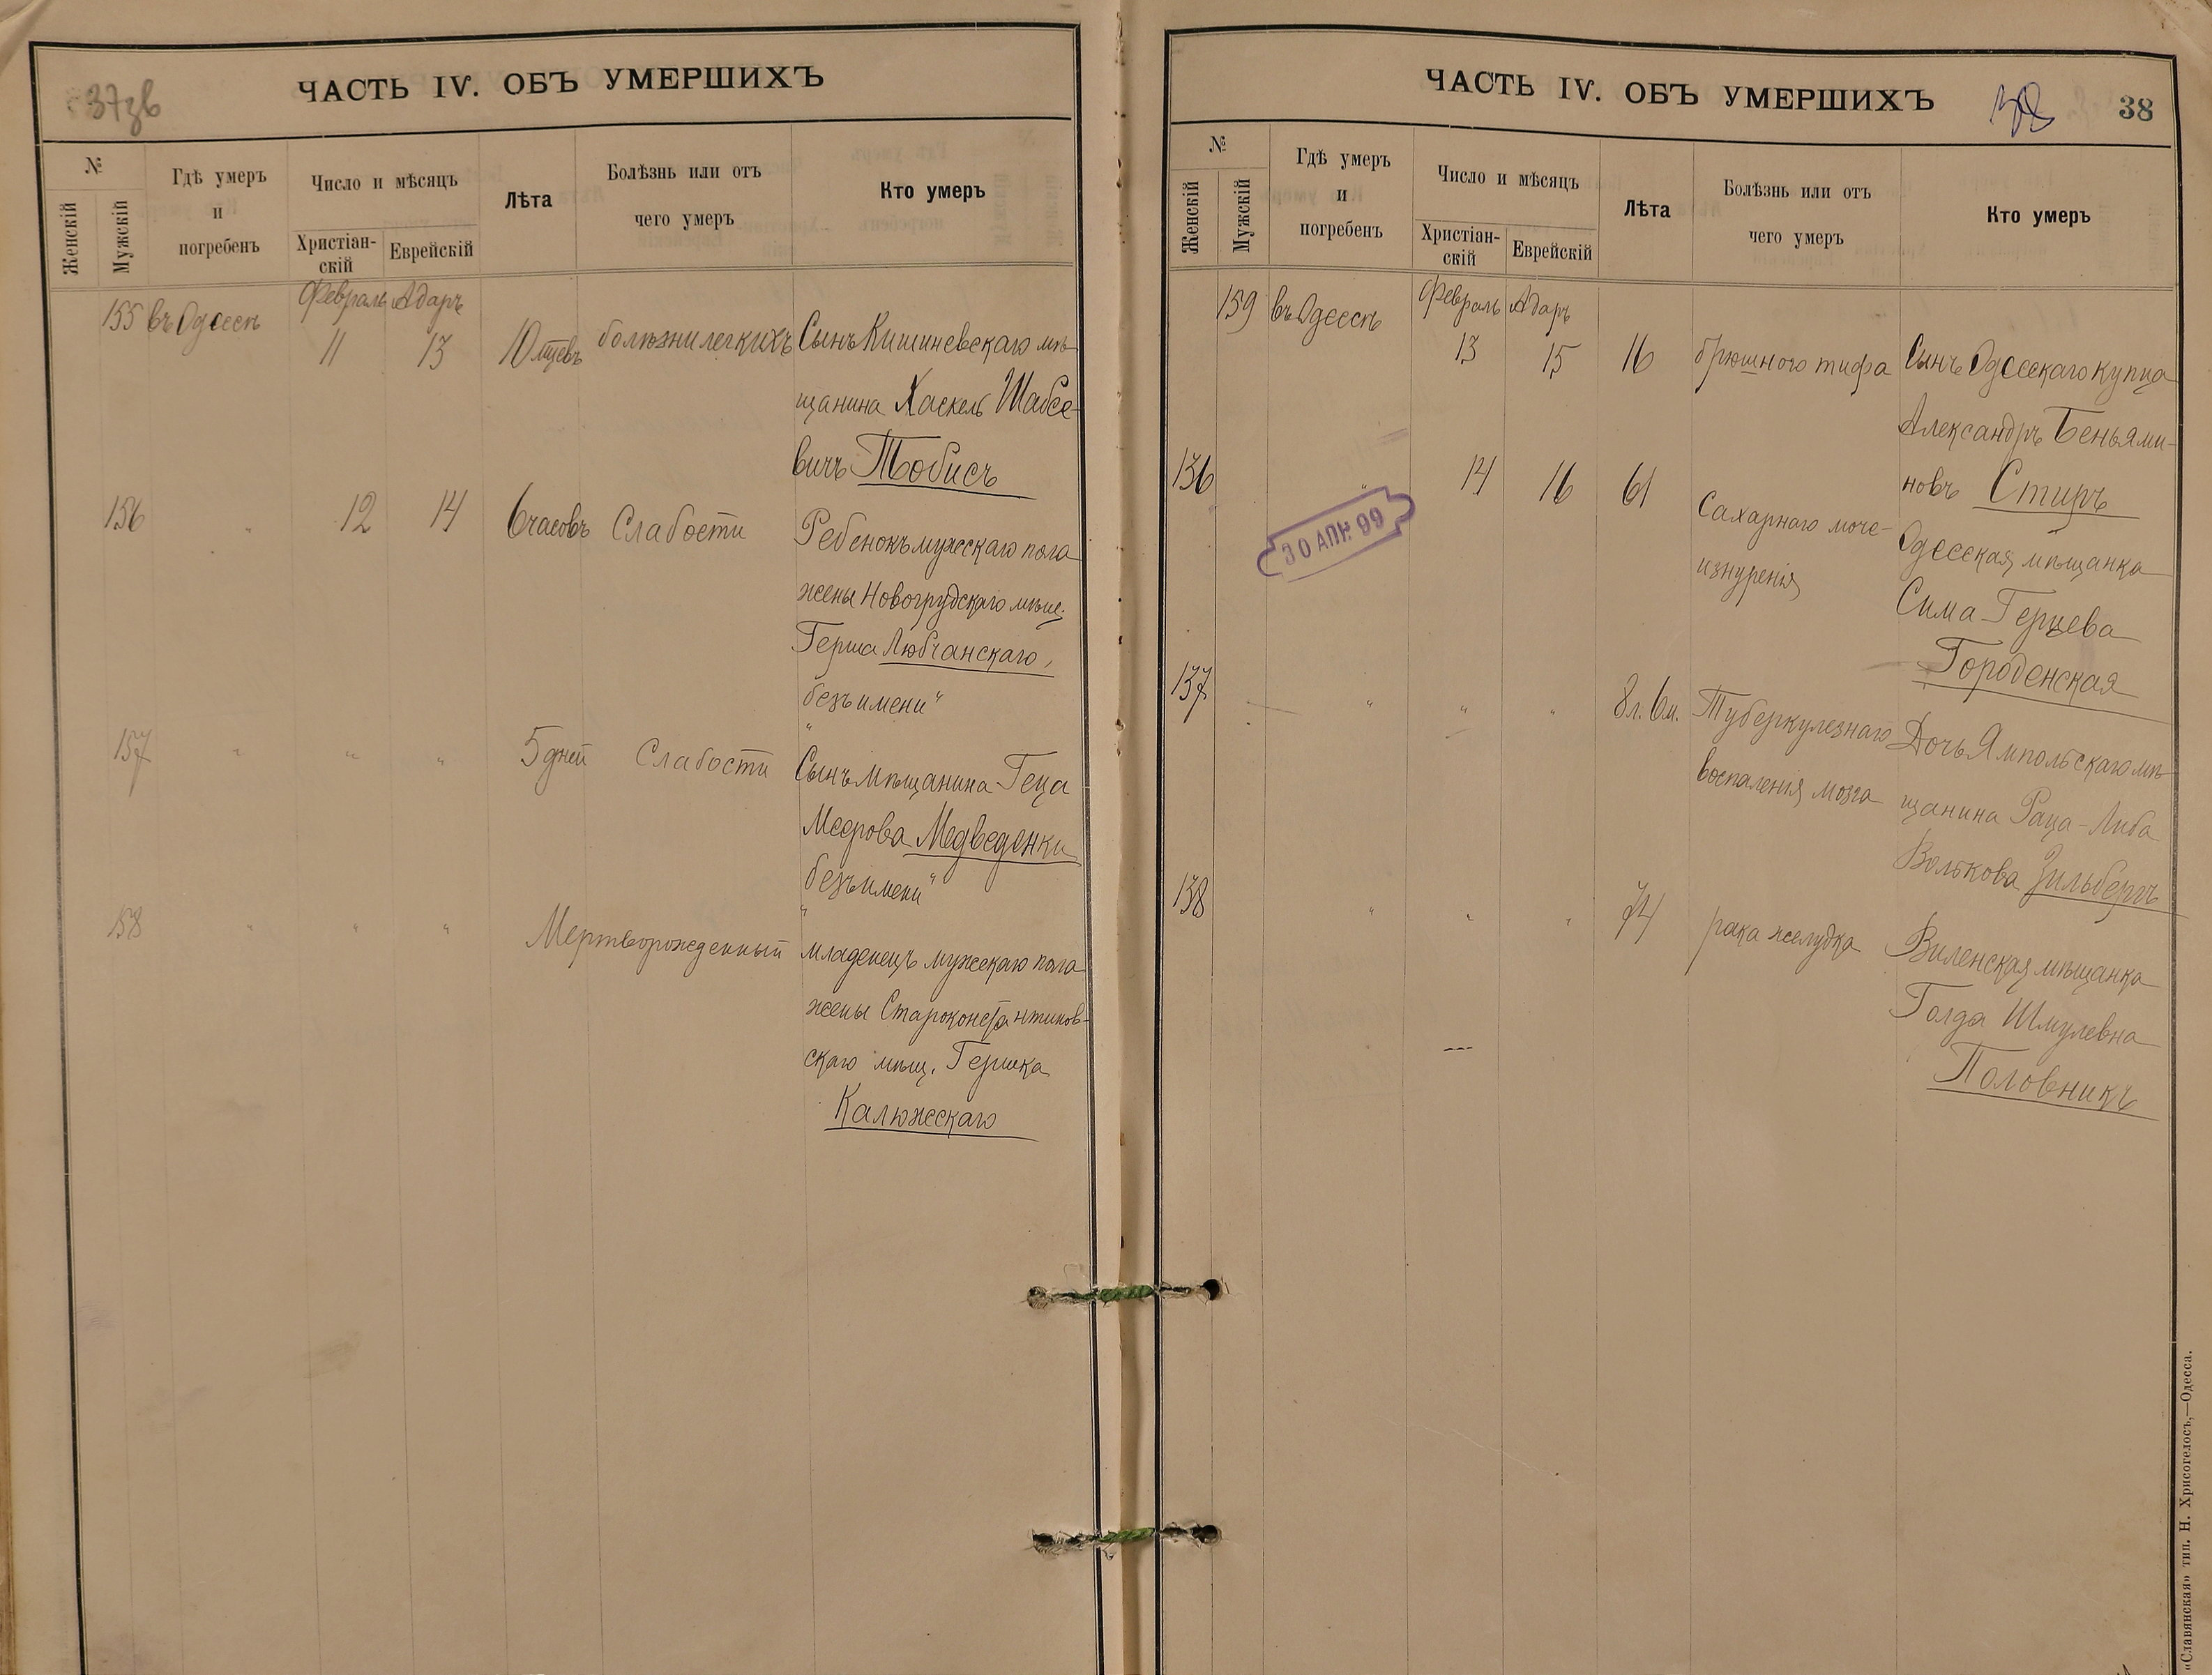 37зв
ЧАСТЬ IV. ОБЪ УМЕРШИХЪ
№
Женскій
Мужскій
Гдѣ умеръ
и
погребенъ
Число и мѣсяцъ
Христіан-
скій
Еврейскій
Лѣта
Болѣзнь или отъ
чего умеръ
Кто умеръ
155 въ Одессѣ Февраль Адаръ
11 13 10 мцевъ болѣзни легкихъ Сынъ Кишиневскаго мѣ-
щанина Хаскель Шабсе-
вичъ Тобисъ
156 " 12 14 6 часовъ Слабости Ребенокъ мужескаго пола
жены Новогрудскаго мѣщ.
Герша Любчанскаго,
безъ имени"
157 " " " 5 дней Слабости Сынъ мѣщанина Геца
Меерова Медведенки
безъ имени"
158 " " " Мертворожденный младенецъ мужескаго пола
жены Староконстантинов-
скаго мѣщ. Гершка
Калюжскаго
ЧАСТЬ IV. ОБЪ УМЕРШИХЪ
38
38
№
Женскій
Мужскій
Гдѣ умеръ
и
погребенъ
Число и мѣсяцъ
Христіан-
скій
Еврейскій
Лѣта
Болѣзнь или отъ
чего умеръ
Кто умеръ
159 въ Одессѣ Февраль Адаръ
13 15 16 брюшного тифа Сынъ Одесскаго купца
Александръ Беньями-
новъ Стиръ
136 " 14 16 61 Сахарнаго моче-
изнуренія Одесская мѣщанка
Сима Герцева
Городенская
30 АПР. 99
137 " " " 8 л. 6 м. Туберкулезнаго
воспаленія мозга Дочь Ямпольскаго мѣ-
щанина Раца-Либа
Волькова Зильбергъ
138 " " " 74 рака желудка Виленская мѣщанка
Голда Шмулевна
Половникъ
«Славянская» тип. Н. Хрисогелосъ,—Одесса.